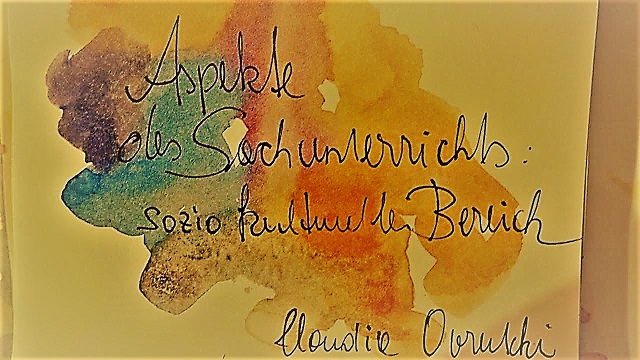 Aspekte
des Sachunterrichts:
soziokultureller Bereich
Claudia